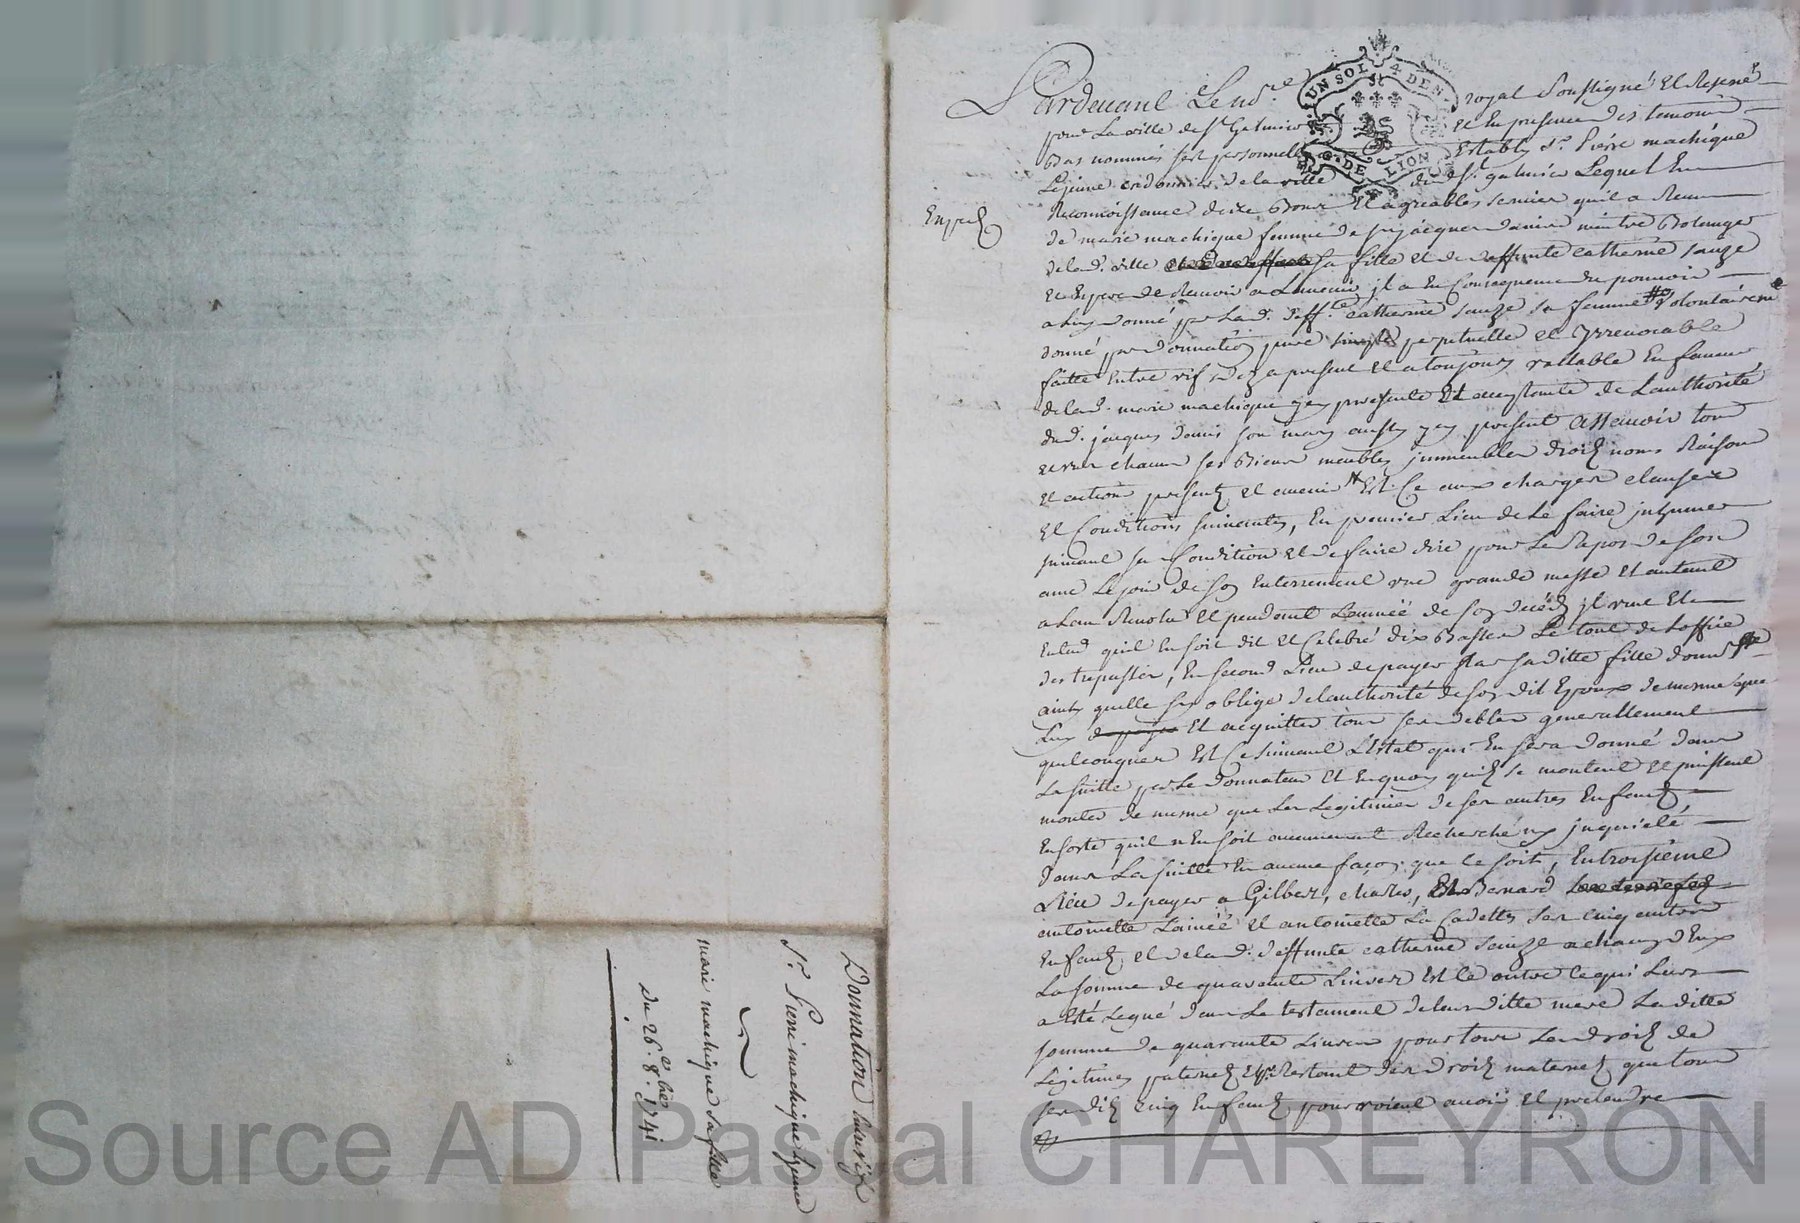 Donnation entre vifz
Sr. Pierre machique lejeune
a
marie machique sa fille
Du 26e. 8bre 1741
Expedé
Pardevant Le nore royal Soussigné Et Reservé
pour La ville de St Galmier Et En presence des temoins
Bas nommés fut personnellemt Establis Sr. Pierre machique
Lejeune cordonnier de la ville de St. galmier Lequel En
Reconnoissance de ce Bons Et agreables services quil a Reçu
de marie machique femme de sr jacques danis mintre Bolanger
de lad. ville sa fille et de deffunte catherine sauze
Et Espere de Recevoir a Lavenir, jl a En Consequence du pouvoir
a Luy donné par Lad. deffte. catherine sauze sa femme volontairemt
donné par donnation pure simple perpetuelle et Yrrevocable
faitte Entre vifs des a present Et a toujours vallable En faveur
de lad. marie machique jcy presente Et acceptante de Lauthorité
dud. jacques danis son mary aussy jcy present Assavoir tous
et un chacun ses Biens meubles jmmeubles droitz noms Raisons
Et actions presentz et avenir Est Ce aux charges clauses
Et Conditions suivantes, En premier Lieu de Le faire jnhumer
suivant sa Condition Et de faire dire pour Le Repos de son
ame Le jour de son Enterrement une grande messe Et autant
a Lan Revolu Et pendant Lannéé de son decéds jl veut Et
Entend quil En soit dit Et Celebré dix Basses Le tout de Loffice
des trepassés, En second Lieu de payer Par saditte fille donnre
ainsy quelle sy oblige de Lauthorité de son dit Epoux de mesme que
Luy Et acquitter tous ses debtes generallement
quelconques Est Ce suivant LEstat qui En sera donné dans
La suitte par Le donnateur Et En quoy quilz se montent Et puissent
monter de mesme que Les Legitimes de ses autres Enfantz
En sorte quil nEn soit aucunement Recherché ny jnquieté
dans La suitte En aucune façon que ce soit, En troisieme
Lieu de payer a Gilbert, charles, Et Bernard
antoinette Lainéé Et antoinette La Cadette ses cinq autres
Enfantz et de lad. deffunte catherine sauze a chacun dEux
La somme de quarante Livres Est ce outre ce qui Leur
a Eté Legué dans Le testament de leur ditte mere La ditte
somme de quarante Livres pour tous Les droitz de
Legitimes paternelz Et Restant des droitz maternelz que tous
ses ditz cinq Enfantz pourroient avoir Et pretendre
UN SOL 4 DEN.
G. DE LION
Source AD Pascal CHAREYRON